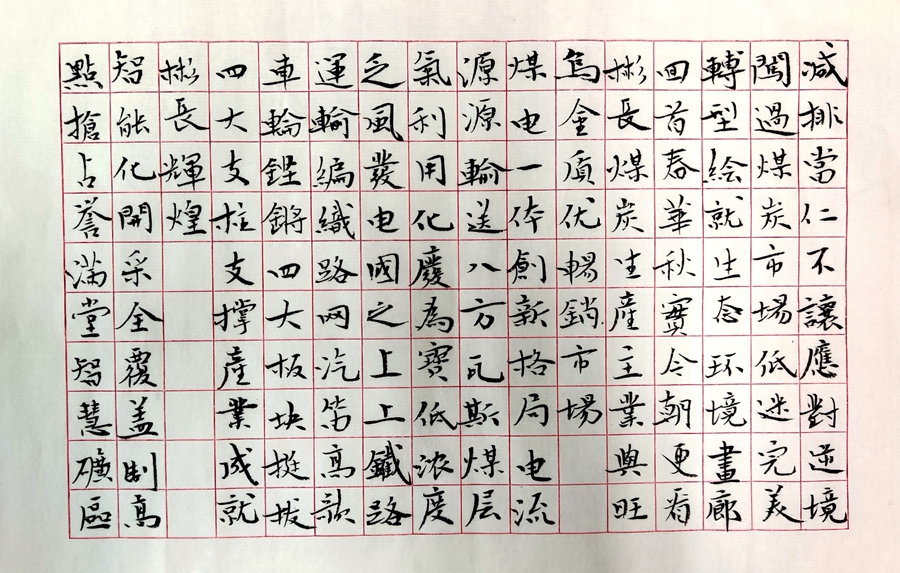 減排當仁不讓應對逆境
闖過煤炭市場低迷完美
轉型絵就生态环境畫廊
回首春華秋實今朝更看
彬長煤炭生產主業興旺
烏金质优暢銷市場
煤电一体創新格局电流
源源輸送八方瓦斯煤层
氣利用化廢為寶低浓度
乏風發电國之上上鐵路
運輸編織路网汽笛高歌
車輪鏗鏘四大板块挺拔
四大支柱支撑產業成就
彬長輝煌
智能化開采全覆盖制高
點搶占誉满堂智慧礦區